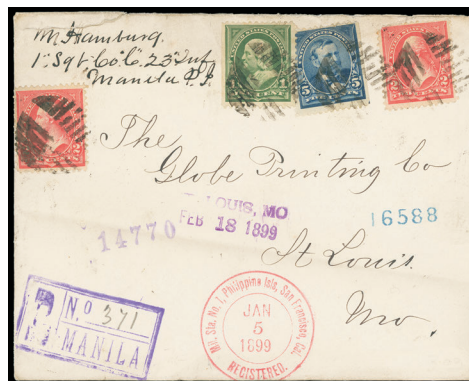 Wm Hamburg.
1st Sgt Co "C" 23d Inf
Manila P.I.
1
5
2
2
The
Globe Printing Co
St Louis
Mo.
LOUIS, MO
FEB 18 1899
14770
16588
R
No 371
MANILA
Mil. Sta. No. 1, Philippine Isls. San Francisco, Cal.
JAN
5
1899
REGISTERED.